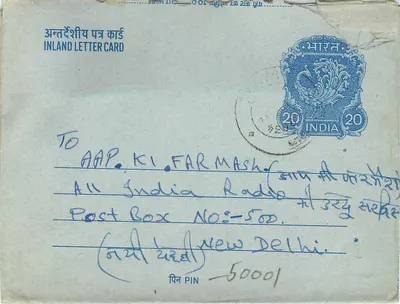 अन्तर्देशीय पत्र कार्ड
INLAND LETTER CARD
भारत
20 20
INDIA
TO
AAP. KI. FARMASH. (आप की फरमैश)
All India Radio की उर्दू सर्विस
Post Box No:-500.
(नयी देहली) New Delhi.
पिन PIN 50001